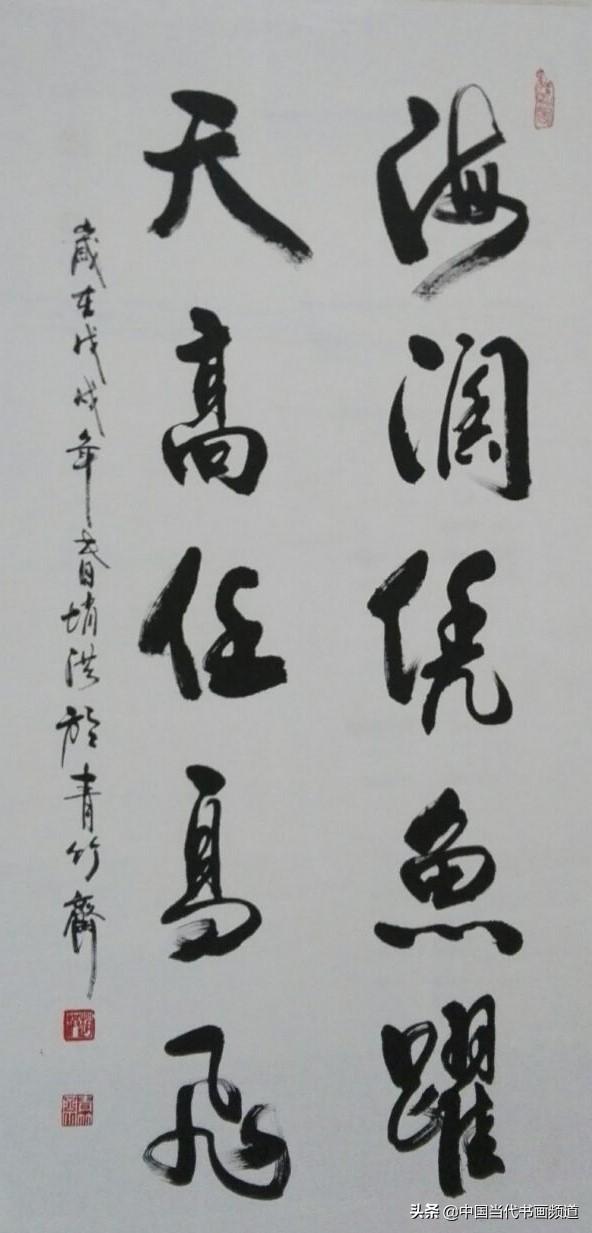 海阔凭鱼跃
天高任鸟飞
岁在戊戌年春 洪於青竹斋
头条 @中国当代书画频道